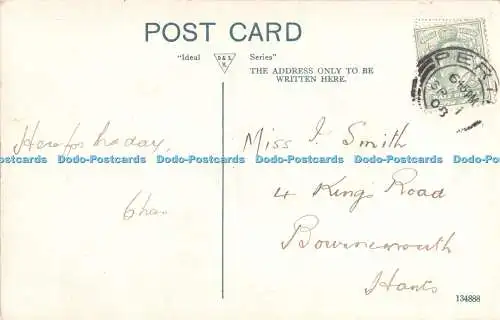 POST CARD
"Ideal Series"
D & S
K
THE ADDRESS ONLY TO BE
WRITTEN HERE.
PERT
6 PM
SP 1
03
Here for the day,
Chas
Miss J. Smith
4 King's Road
Bournemouth
Hants
Dodo-Postcards Dodo-Postcards Dodo-Postcards Dodo-Postcards Dodo-Postcards Dodo-Postcards
134888